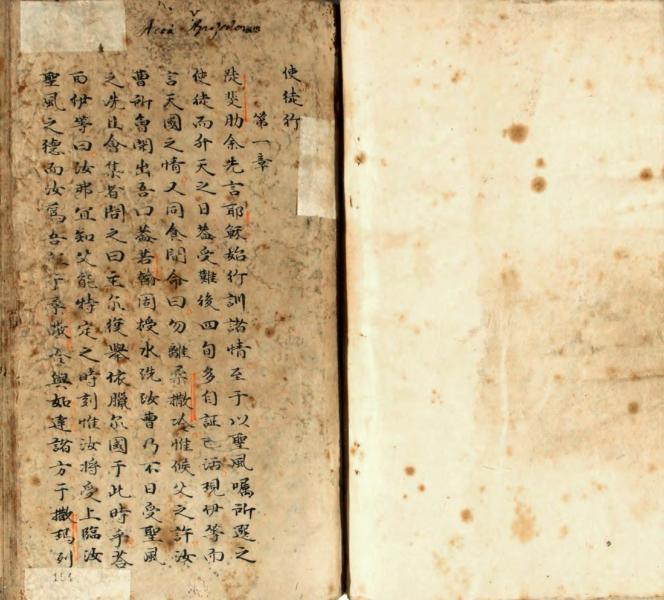 Acta Apostolorum
使徒行
第一章
陡斐肋余先言耶穌始行訓諸情至于以聖風囑所選之
使徒而升天之日葢受難後四旬多自証已活現伊等而
言天國之情又同食間命曰勿離柔撒冷惟候父之許汝
曹所曾聞出吾口葢若翰固授水洗汝曹乃不日受聖風
之洗且會集者問之曰主尔復舉依臘尔國于此時乎荅
而伊等曰汝弗宜知父能特定之時刻惟汝將受上臨汝
聖風之德而汝爲吾証于柔撒冷與如達諸方于撒瑪列